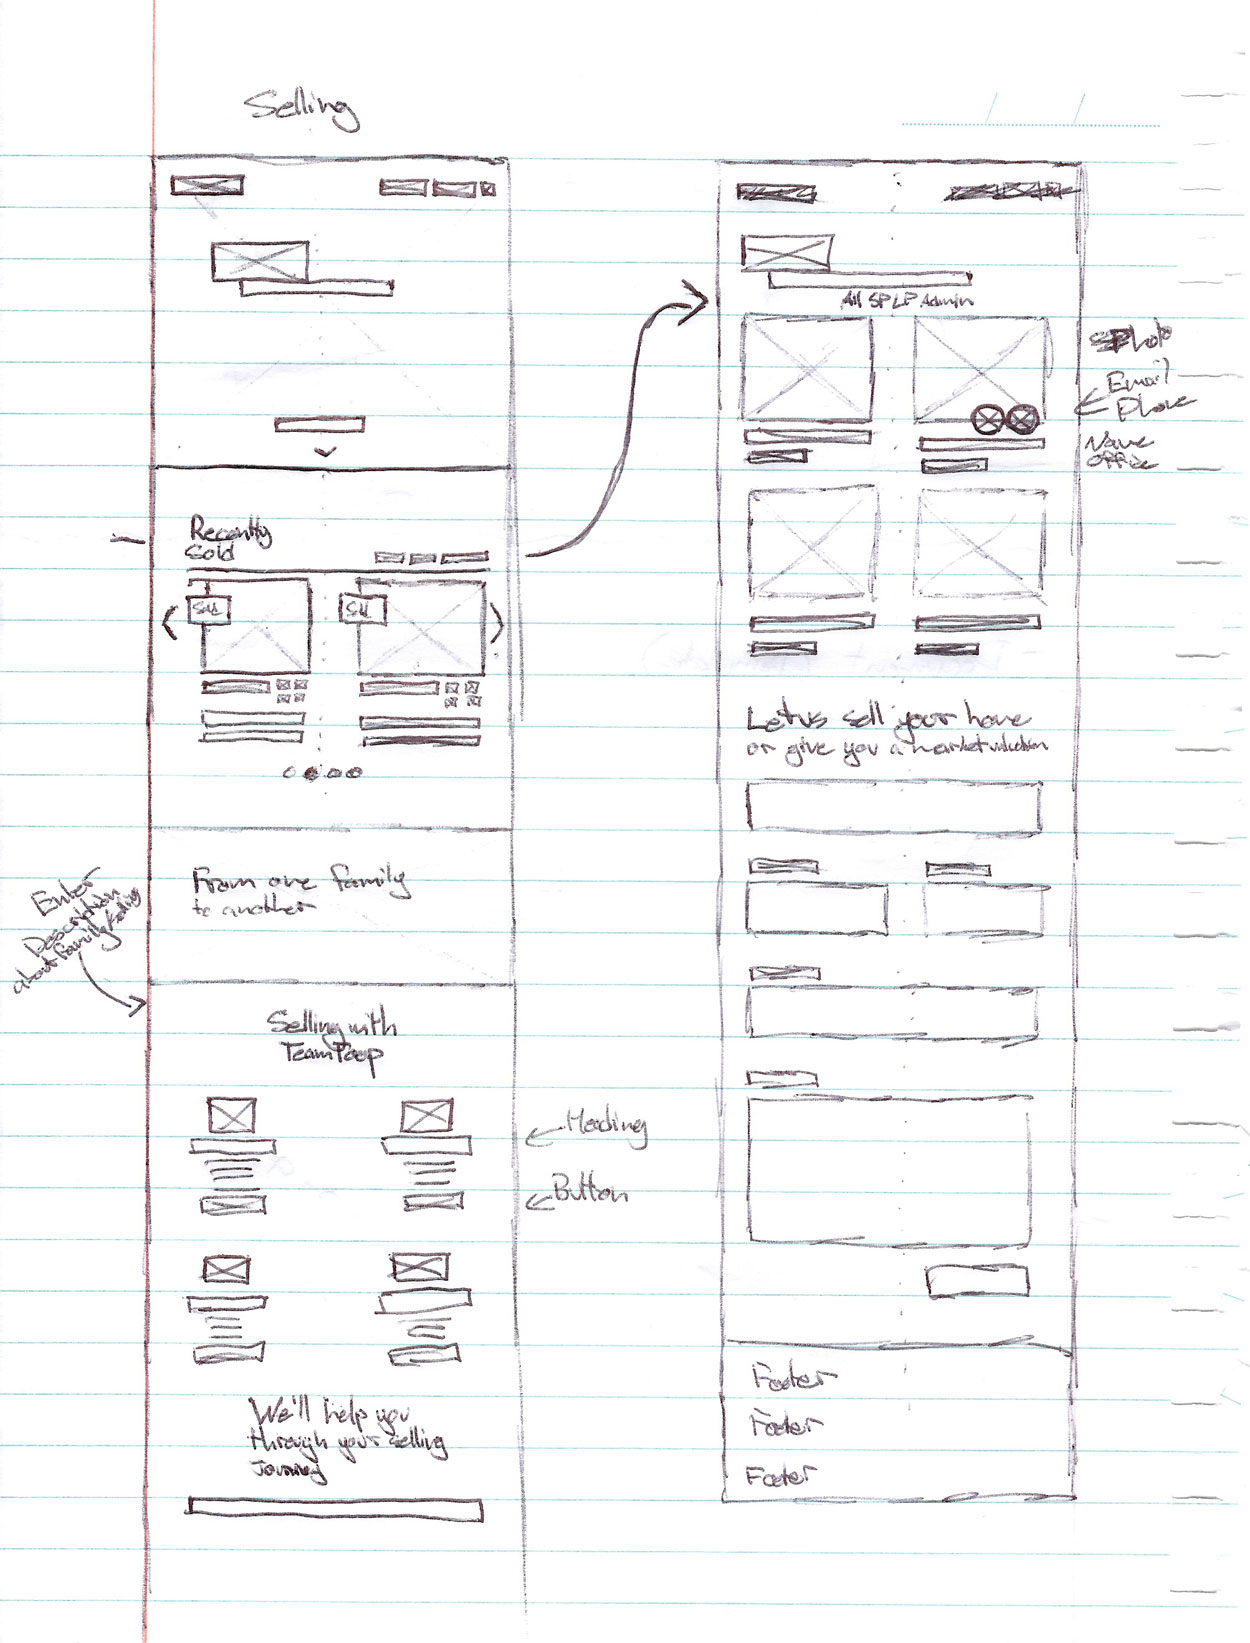 Selling
Recently
Sold
Sold
Sold
From one family
to another
Enter
Description
about family/selling
Selling with
Team Poop
Heading
Button
We'll help you
through your selling
Journey
All SP LP Admin
Photo
Email
Phone
Name
office
Let us sell your home
or give you a market valuation
Footer
Footer
Footer